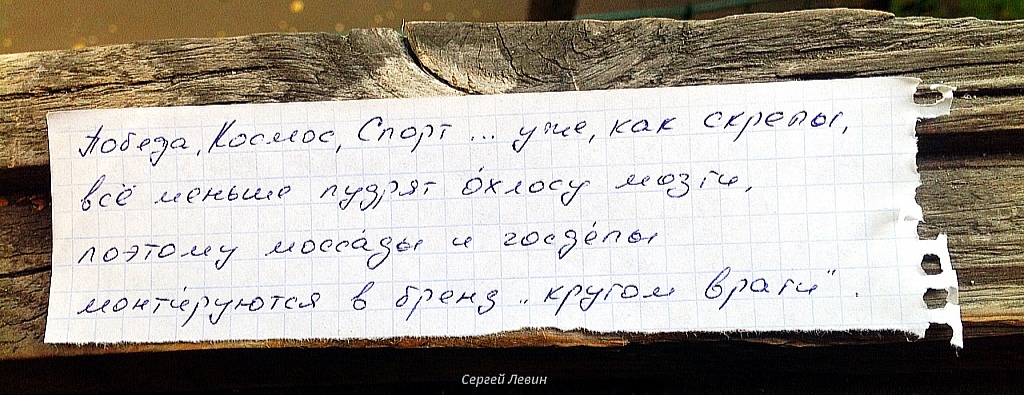 Победа, Космос, Спорт ... уже, как скрепы,
всё меньше пудрят о́хлосу мозги,
поэтому мосса́ды и госде́пы
монти́руются в бренд „кругом враги".
Сергей Левин